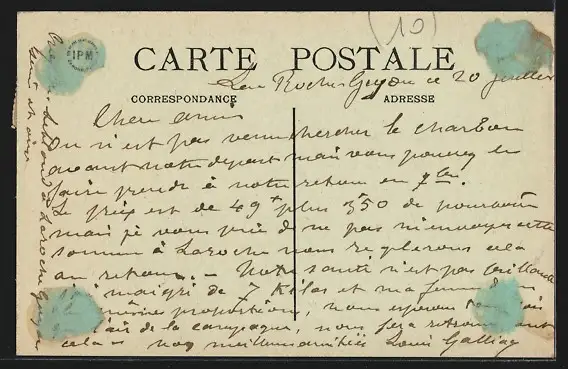 (10)
IPM
CARTE POSTALE
La Roche Guyon ce 20 juillet
CORRESPONDANCE
ADRESSE
Chers amis
On n'est pas venu chercher le charbon
avant notre départ mais vous pouvez en
faire prendre à notre retour en 7bre.
Le prix est de 49f plus 350 de pourboire
mais je vous prie de ne pas m'envoyer cette
somme à Laroche nous réglerons cela
au retour. - Notre santé n'est pas brillante
maigri de 7 Kilos et ma femme
mêmes proportions, nous espérons
l'air de la campagne, nous fera
cela nos meilleures amitiés Louis
Laroche Guyon
Seine et Oise